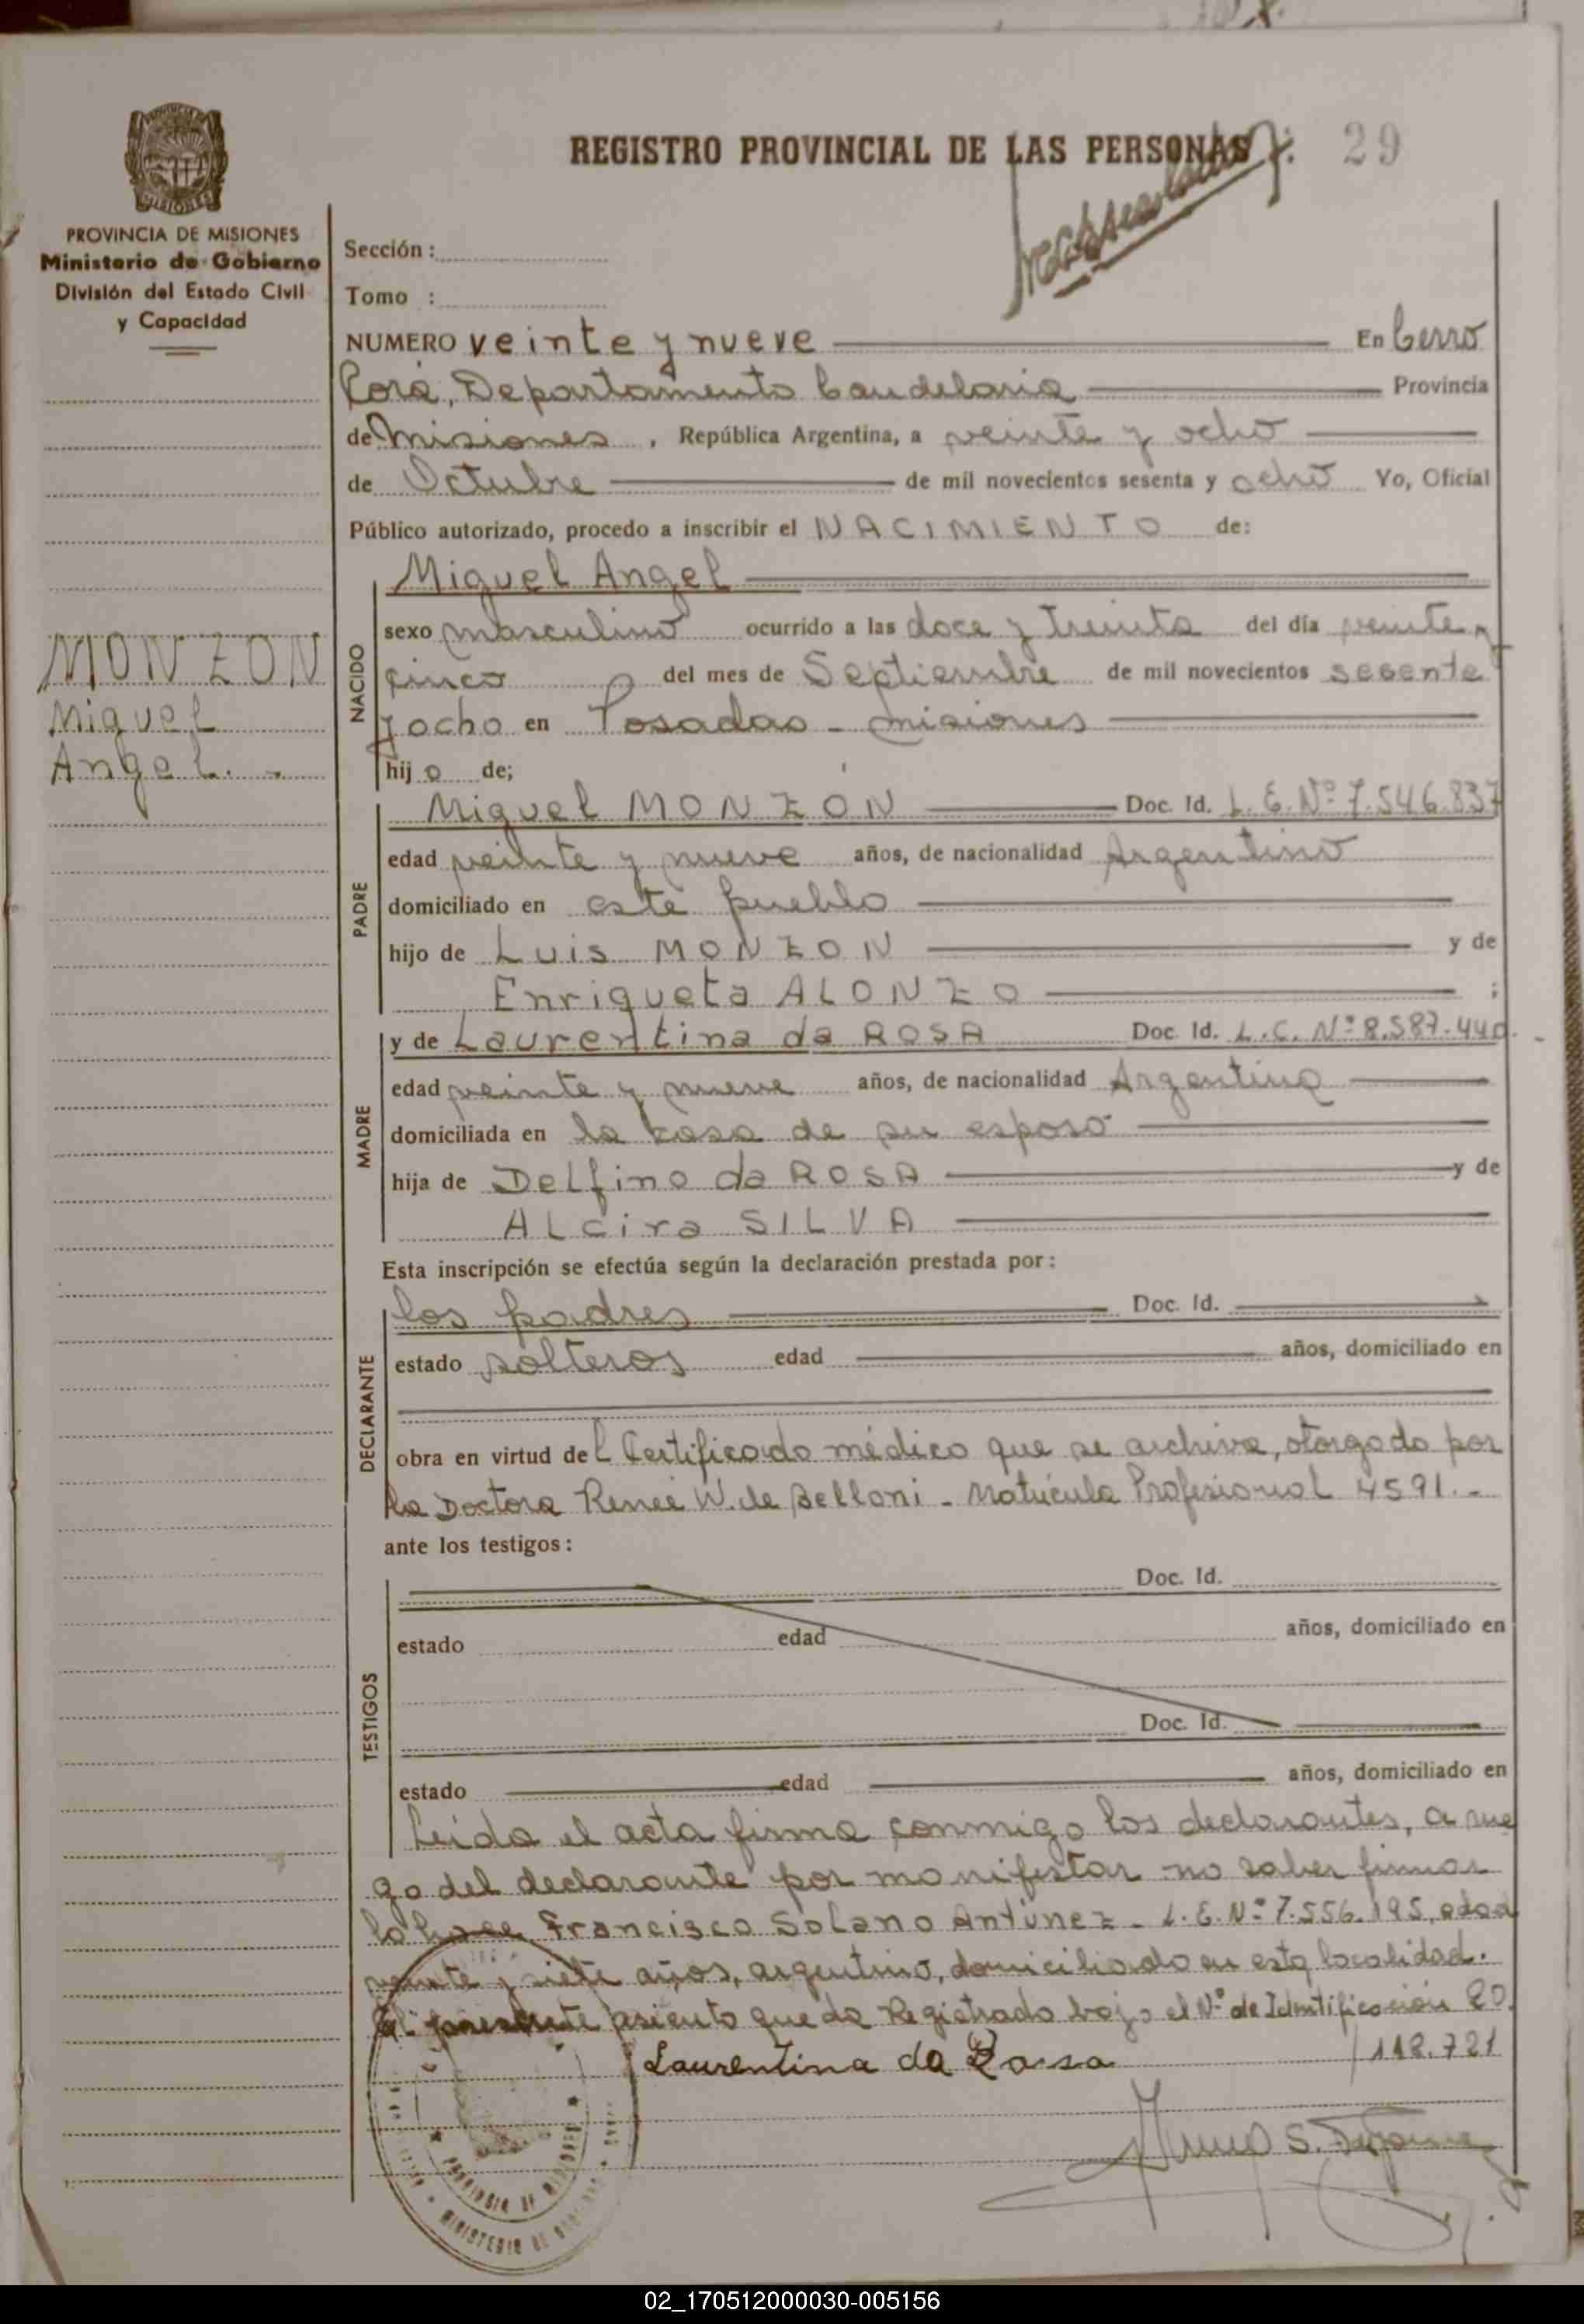 REGISTRO PROVINCIAL DE LAS PERSONAS
29
PROVINCIA DE MISIONES
Ministerio de Gobierno
División del Estado Civil
y Capacidad
Sección :
Tomo :
NUMERO veinte y nueve En Cerro
Corá, Departamento Candelaria Provincia
de Misiones , República Argentina, a veinte y ocho
de Octubre de mil novecientos sesenta y ocho Yo, Oficial
Público autorizado, procedo a inscribir el NACIMIENTO de:
MONZON
Miguel
Angel. -
NACIDO
Miguel Angel
sexo masculino ocurrido a las doce y treinta del día veinte y
cinco del mes de Septiembre de mil novecientos sesenta
y ocho en Posadas - Misiones
hijo de;
PADRE
Miguel MONZÓN Doc. Id. L. E. Nº 7.546.837
edad veinte y nueve años, de nacionalidad Argentino
domiciliado en este pueblo
hijo de Luis MONZON y de
Enriqueta ALONZO ;
MADRE
y de Laurentina da ROSA Doc. Id. L.C. Nº 8.587.440. -
edad veinte y nueve años, de nacionalidad Argentina
domiciliada en la casa de su esposo
hija de Delfino da ROSA y de
Alcira SILVA
Esta inscripción se efectúa según la declaración prestada por :
DECLARANTE
los padres Doc. Id.
estado solteros edad años, domiciliado en
obra en virtud del Certificado médico que se archiva, otorgado por
la Doctora Reneé W. de Belloni - Matrícula Profesional 4591. -
ante los testigos :
TESTIGOS
Doc. Id.
estado edad años, domiciliado en
Doc. Id.
estado edad años, domiciliado en
Leída el acta firma conmigo los declarantes, a rue
go del declarante por manifestar no saber firmar
lo hace Francisco Solano Antúnez - L. E. Nº 7.556.195, edad
veinte y siete años, argentino, domiciliado en esta localidad.
El presente asiento queda Registrado bajo el Nº de Identificación 20.
/ 112.721
Laurentina da Rosa
PROVINCIA DE MISIONES
MINISTERIO DE
02_170512000030-005156